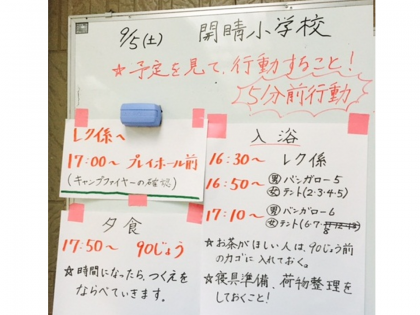 9/5(土) 開晴小学校
☆予定を見て、行動すること!
5分前行動
レク係へ
17:00〜 プレイホール前
(キャンプファイヤーの確認)
夕食
17:50〜 90じょう
☆時間になったら、つくえを
ならべていきます。
入浴
16:30〜 レク係
16:50〜 男バンガロー5
女テント(2・3・4・5)
17:10〜 男バンガロー6
女テント(6・7・
8
☆お茶がほしい人は、90じょう前
のカゴに入れておく。
☆寝具準備、荷物整理を
しておくこと!